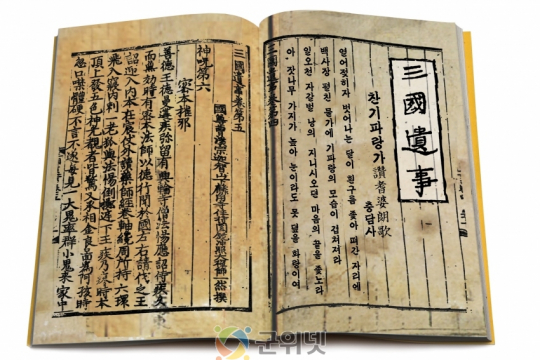 三國遺事
찬기파랑가 讚耆婆朗歌
충담사
열어젖히자 벗어나는 달이 흰구름 좇아 떠간 자리에
백사장 펼친 물가에 기파랑의 모습이 겹쳐져라
일오천 자갈벌 낭의 지니시오던 마음의 끝을 좇노라
아 잣나무 가지가 높아 눈이라도 못 덮을 화랑이여
三國遺事卷第五
國尊曹溪宗迦智山下麟角寺住持圓鏡冲照大禪師一然撰
神呪第六
密本摧邪
善德王德曼遘疾弥留有興輪寺僧法惕應詔侍疾久
而無効時有密本法師以德行聞於國左右請代之王
詔迎入內本在宸仗外讀藥師經卷軸纔周所持六環
飛入寢內刺一老狐與法惕倒擲庭下王疾乃瘳時本
頂上發五色神光覩者皆驚又丞相金良啚爲阿孩時
忽口噤體硬不言不遂每見一大鬼率群小鬼來家中
군위넷